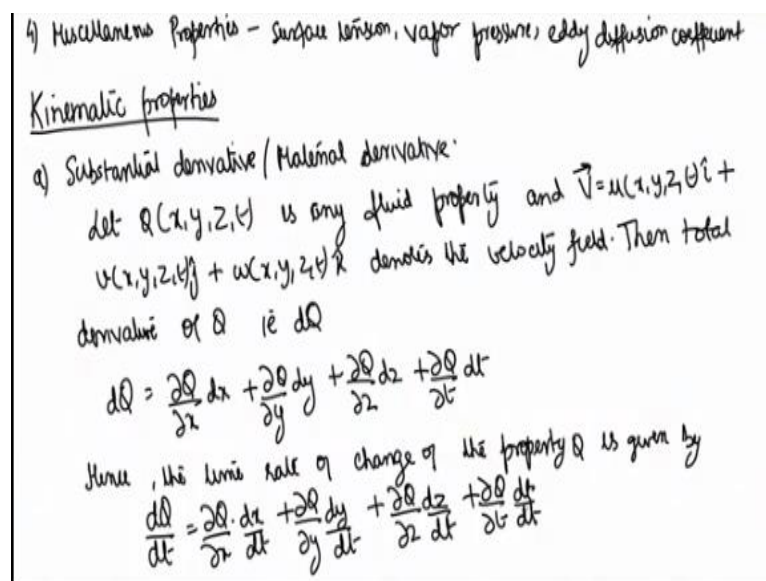 4) Miscellaneous Properties - Surface tension, vapor pressure, eddy diffusion coefficient
Kinematic properties
a) Substantial derivative / Material derivative.
Let Q(x,y,z,t) is any fluid property and V⃗ = u(x,y,z,t)î +
v(x,y,z,t)ĵ + w(x,y,z,t)k̂ denotes the velocity field. Then total
derivative of Q ie dQ
dQ = ∂Q/∂x dx + ∂Q/∂y dy + ∂Q/∂z dz + ∂Q/∂t dt
Hence, the time rate of change of the property Q is given by
dQ/dt = ∂Q/∂x · dx/dt + ∂Q/∂y dy/dt + ∂Q/∂z dz/dt + ∂Q/∂t dt/dt